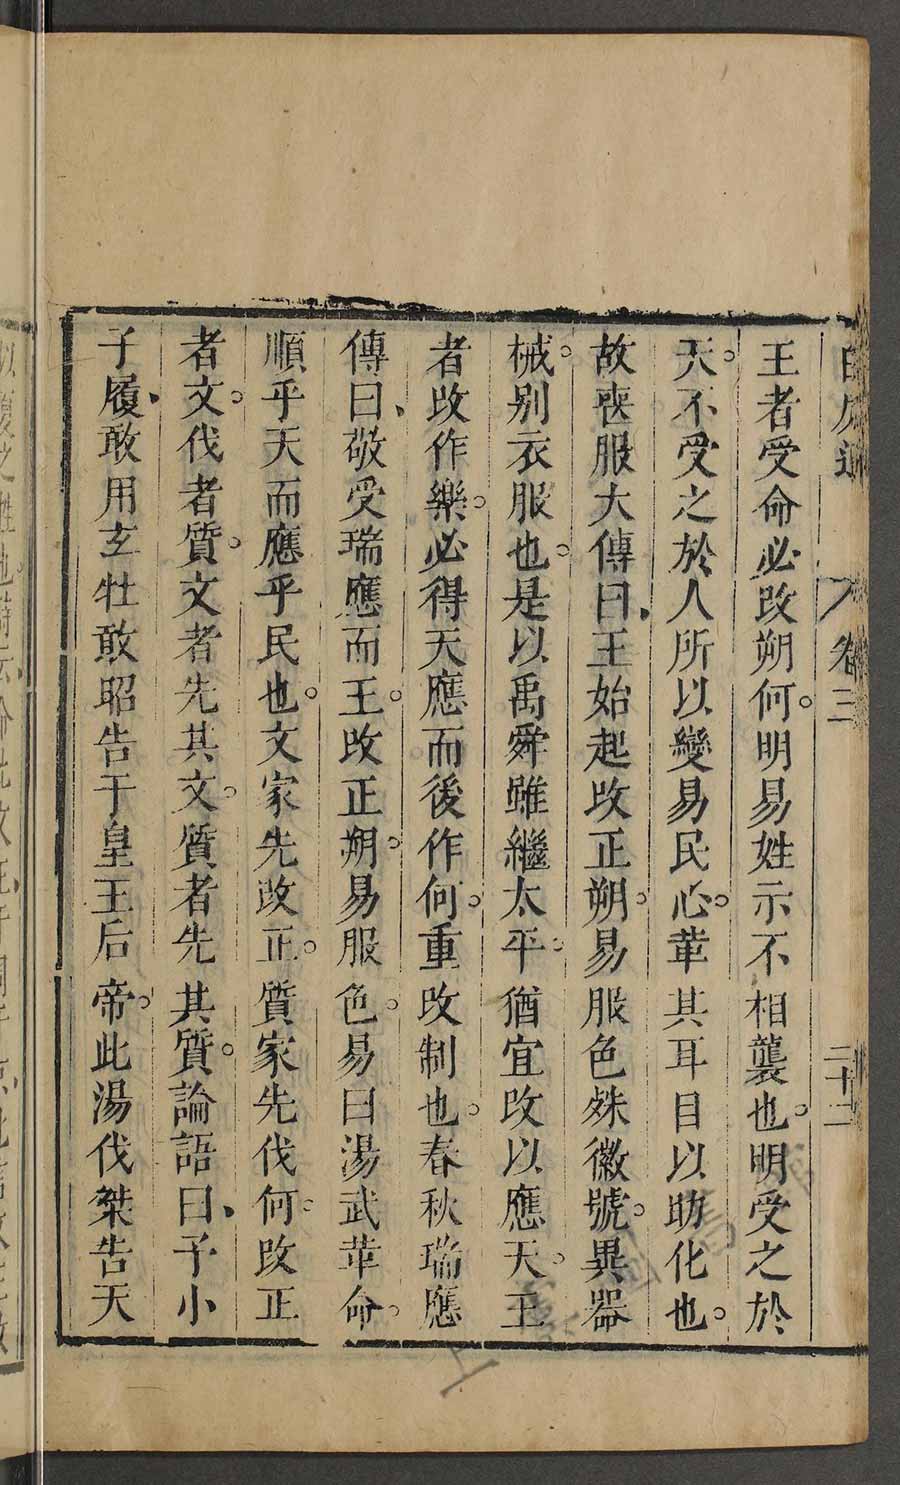 白虎通 卷三 二十二
王者受命必改朔何。明易姓示不相襲也。明受之於
天。不受之於人所以變易民心。革其耳目以助化也。
故喪服大傳曰、王始起改正朔。易服色殊徽號。異器
械。别衣服也。是以禹舜雖繼太平。猶宜改以應天。王
者改作樂。必得天應而後作何。重改制也。春秋瑞應
傳曰、敬受瑞應而王。改正朔。易服色。易曰湯武革命。
順乎天而應乎民也。文家先改正。質家先伐何。改正
者文。伐者質。文者先其文。質者先其質。論語曰、予小
子履、敢用玄牡敢昭告于皇王后帝。此湯伐桀告天